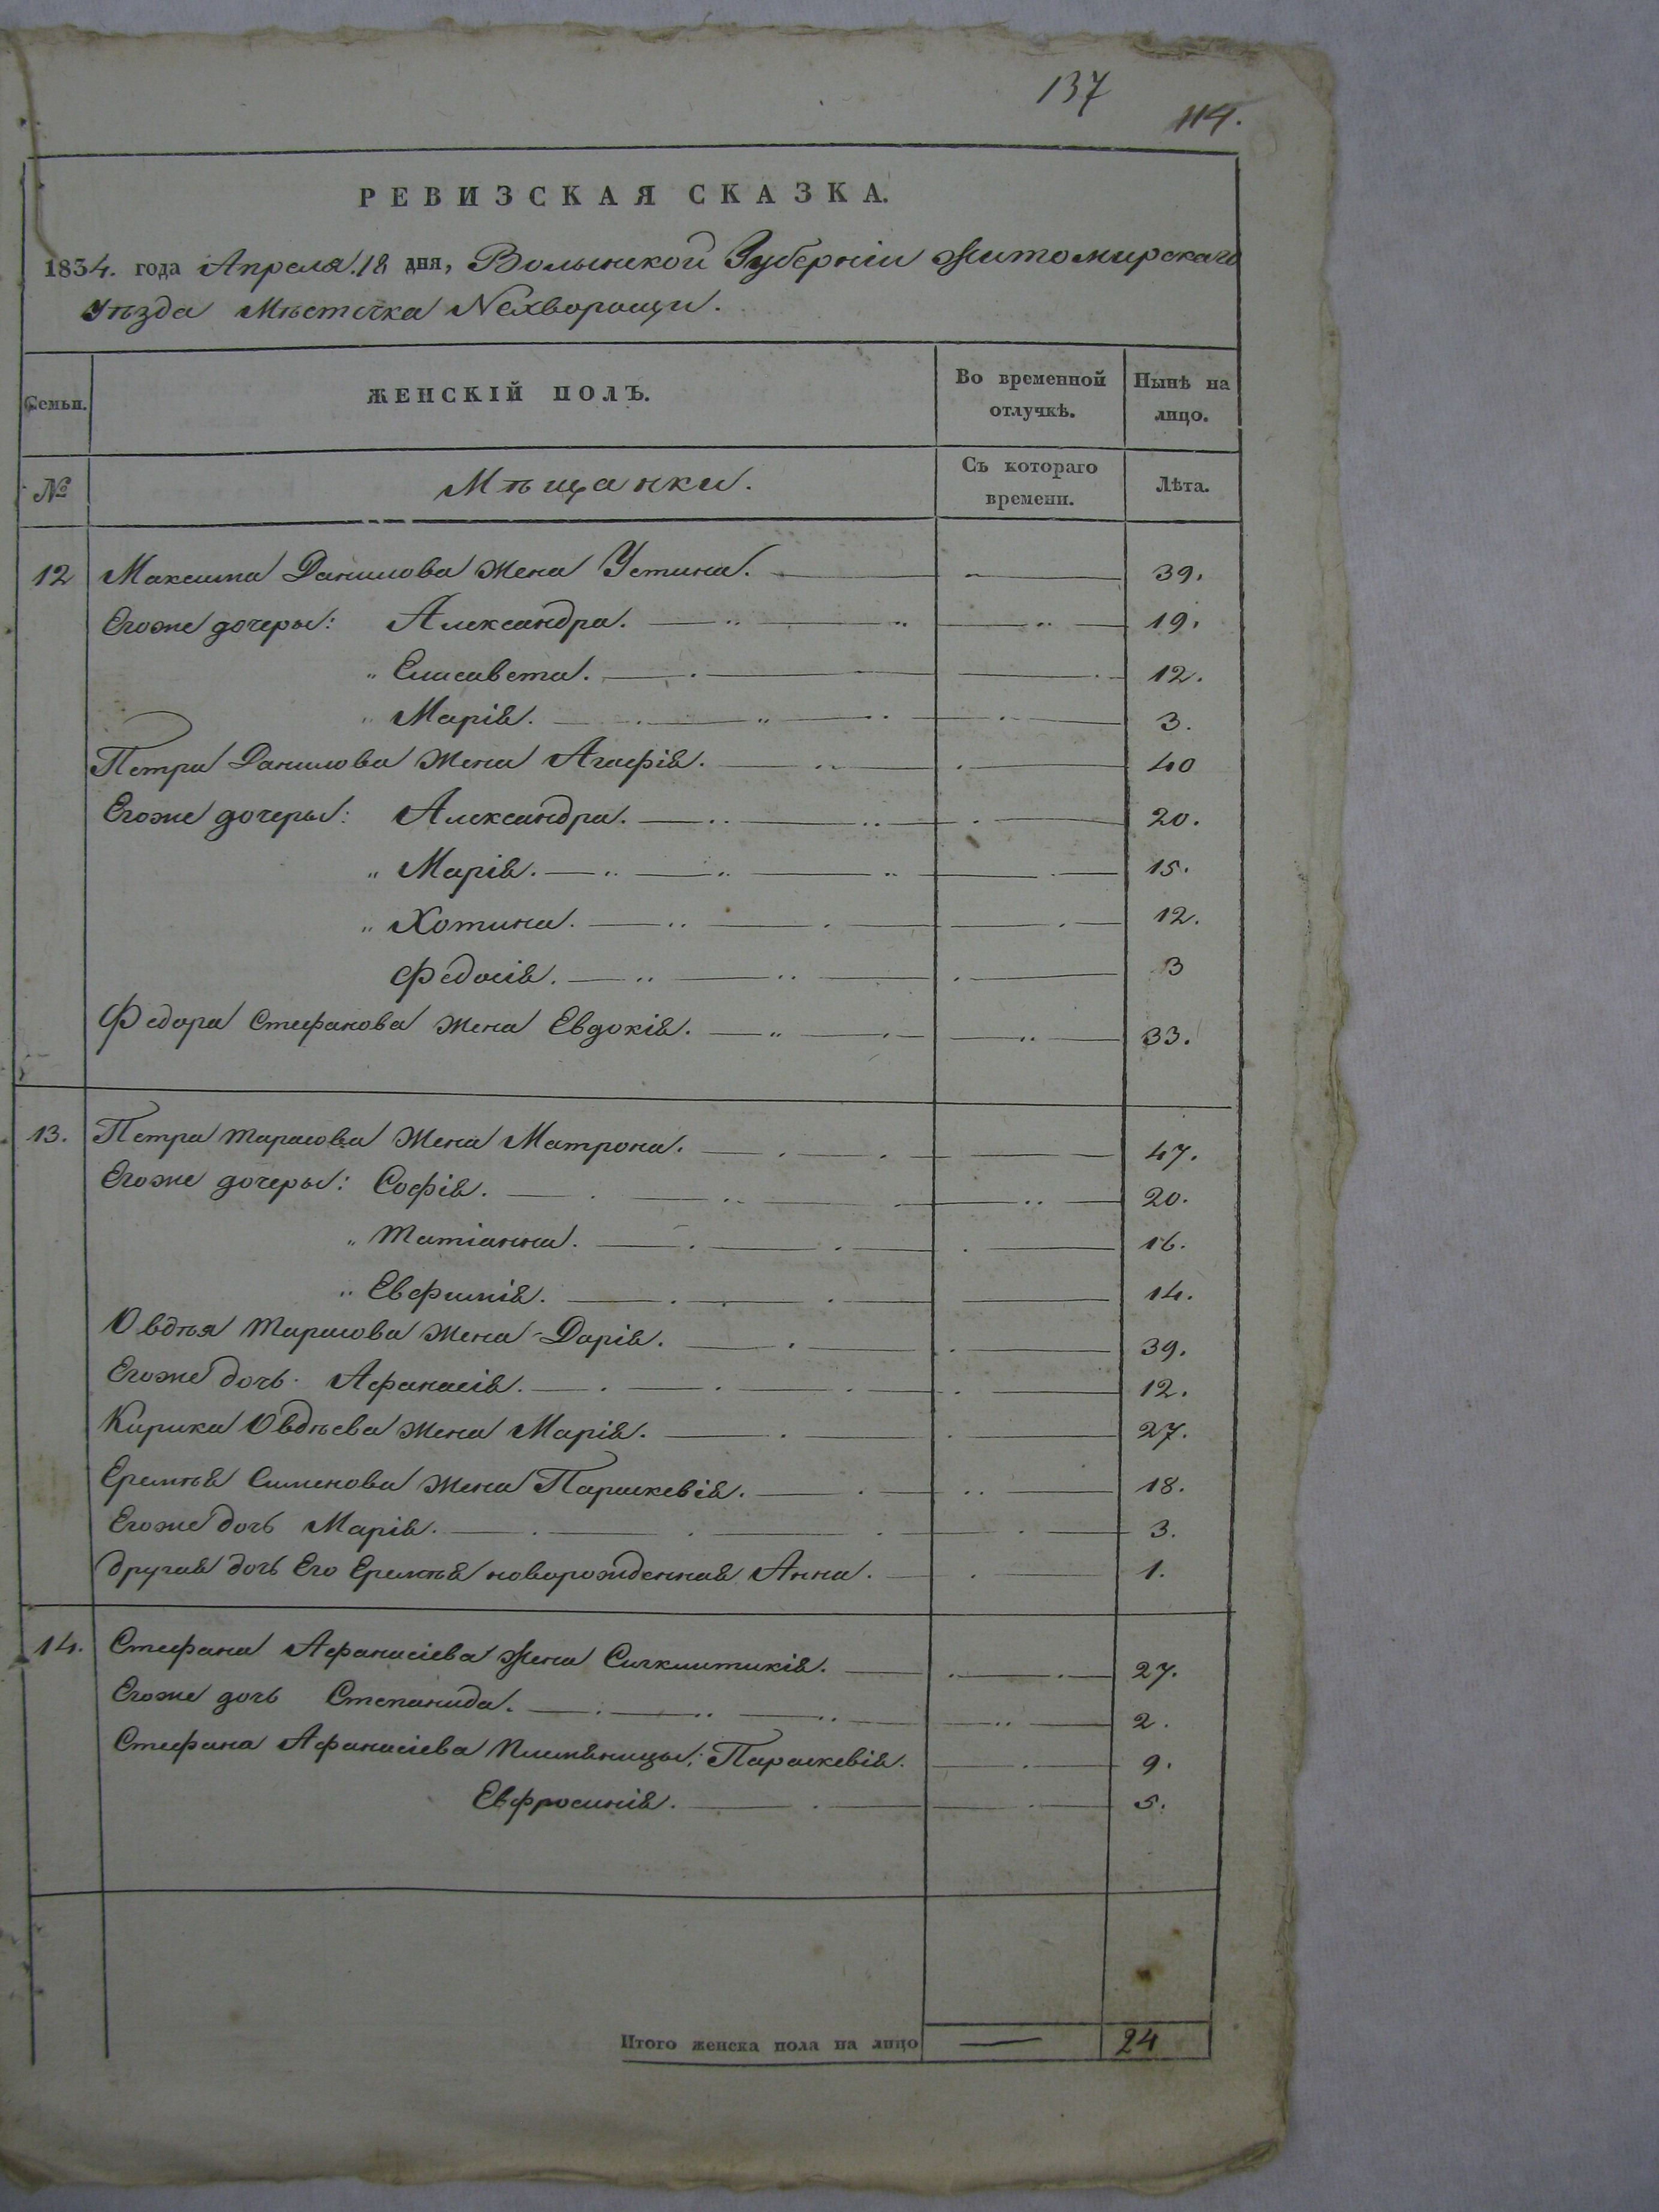 137
114.
РЕВИЗСКАЯ СКАЗКА.
1834. года Апреля 18 дня, Волынской Губерніи Житомирскаго
Уѣзда Мѣстечка Нехворощи.
Семьи. ЖЕНСКІЙ ПОЛЪ. Во временной отлучкѣ. Нынѣ на лицо.
№ Мѣщанки. Съ котораго времени. Лѣта.
12 Максима Данилова жена Устина. 39.
Егоже дочеры: Александра. 19.
„ Елисавета. 12.
„ Марія. 3.
Петра Данилова жена Агафія. 40
Егоже дочеры: Александра. 20.
„ Марія. 15.
„ Хотина. 12.
Федосія. 3
Федора Стефанова жена Евдокія. 33.
13. Петра Тарасова жена Матрона. 47.
Егоже дочеры: Софія. 20.
„ Татіанна. 16.
„ Евфимія. 14.
Овдѣя Тарасова жена Дарія. 39.
Егоже дочь Афанасія. 12.
Кирика Овдѣева жена Марія. 27.
Еремѣя Сименова жена Параскевія. 18.
Егоже дочь Марія. 3.
другая дочь Его Еремѣя новорожденная Анна. 1.
14. Стефана Афанасіева жена 27.
Егоже дочь Степанида. 2.
Стефана Афанасіева племяницы: Параскевія. 9.
Евфросинія. 5.
Итого женска пола на лицо — 24